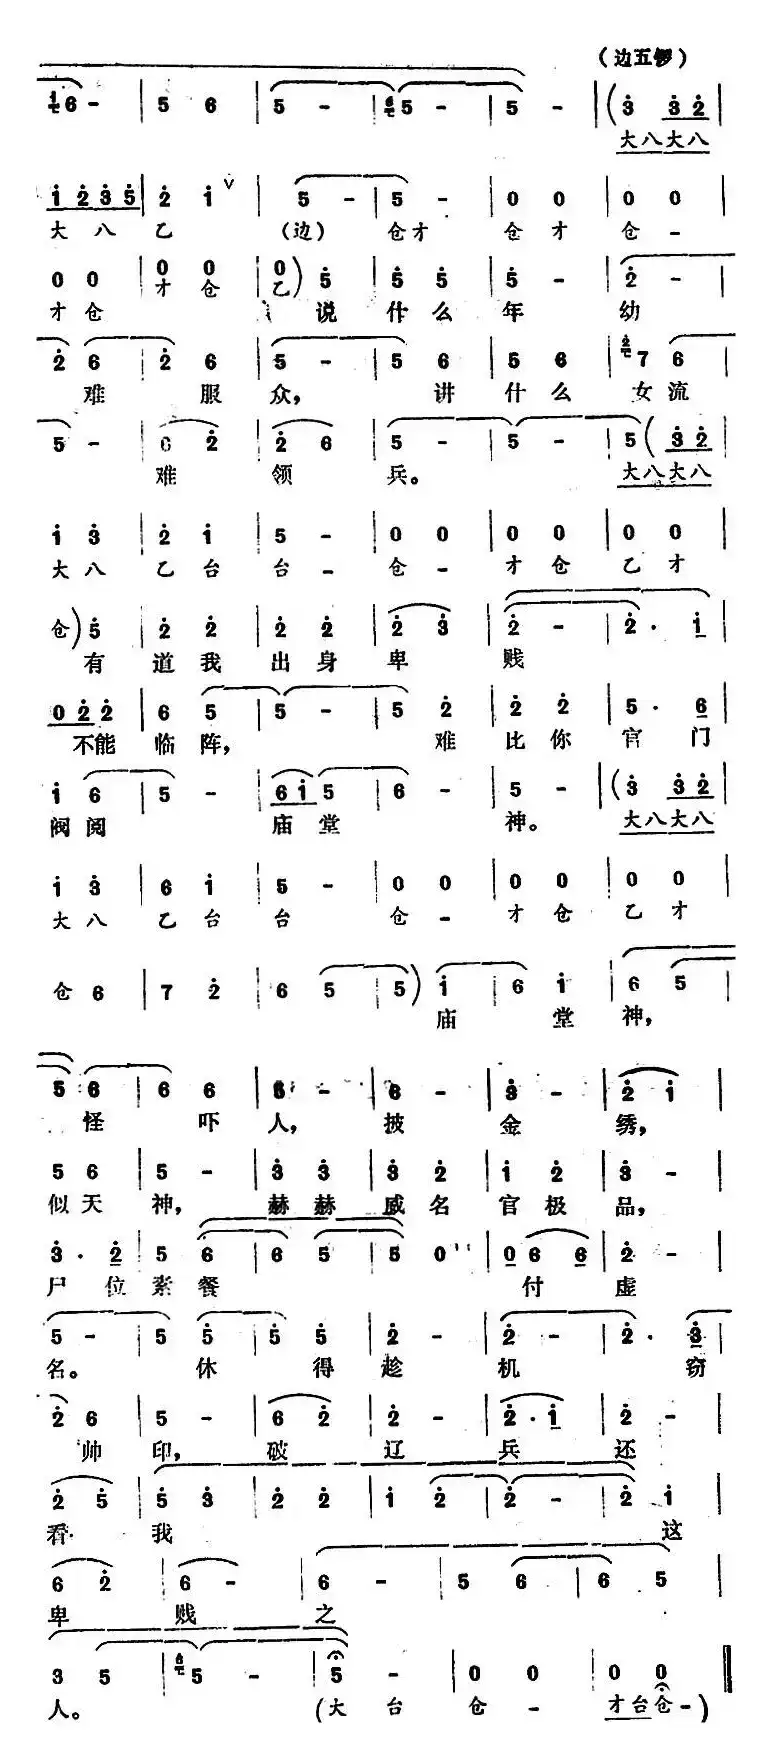 （边五锣）
6 - | 5 6 | 5 - | 5 - | 5 - | ( 3 3 2 |
大八大八
1 2 3 5 | 2 1 ∨ | 5 - | 5 - | 0 0 | 0 0 |
大 八 乙 (边) 仓 才 仓 才 仓 -
0 0 | 0 0 | 0 ) 5 | 5 5 | 5 - | 2 - |
才 仓 才 仓 乙 说 什 么 年 幼
2 6 | 2 6 | 5 - | 5 6 | 5 6 | 7 6 |
难 服 众， 讲 什 么 女 流
5 - | 2 | 2 6 | 5 - | 5 - | 5 ( 3 2 |
难 领 兵。 大八大八
1 3 | 2 1 | 5 - | 0 0 | 0 0 | 0 0 |
大 八 乙 台 台 - 仓 - 才 仓 乙 才
仓 ) 5 | 2 2 | 2 2 | 2 3 | 2 - | 2 · 1 |
有 道 我 出 身 卑 贱
0 2 2 | 6 5 | 5 - | 5 2 | 2 2 | 5 · 6 |
不能 临 阵， 难 比 你 官 门
1 6 | 5 - | 6 1 5 | 6 - | 5 - | ( 3 3 2 |
阀 阅 庙 堂 神。 大八大八
1 3 | 6 1 | 5 - | 0 0 | 0 0 | 0 0 |
大 八 乙 台 台 仓 - 才 仓 乙 才
仓 6 | 7 2 | 6 5 | 5 ) 1 | 6 1 | 6 5 |
庙 堂 神，
5 6 | 6 6 | 6 - | 6 - | 3 - | 2 1 |
怪 吓 人， 披 金 绣，
5 6 | 5 - | 3 3 | 3 2 | 1 2 | 3 - |
似 天 神， 赫 赫 威 名 官 极 品，
3 · 2 | 5 6 | 6 5 | 5 0 | 0 6 6 | 2 - |
尸 位 素 餐 付 虚
5 - | 5 5 | 5 5 | 2 - | 2 - | 2 · 3 |
名。 休 得 趁 机 窃
2 6 | 5 - | 6 2 | 2 - | 2 · 1 | 2 - |
帅 印， 破 辽 兵 还
2 5 | 5 3 | 2 2 | 1 2 | 2 - | 2 1 |
看 我 这
6 2 | 6 - | 6 - | 5 6 | 6 5 |
卑 贱 之
3 5 | 5 - | 5 - | 0 0 | 0 0 ‖
人。 （大 台 仓 - 才台仓 -）